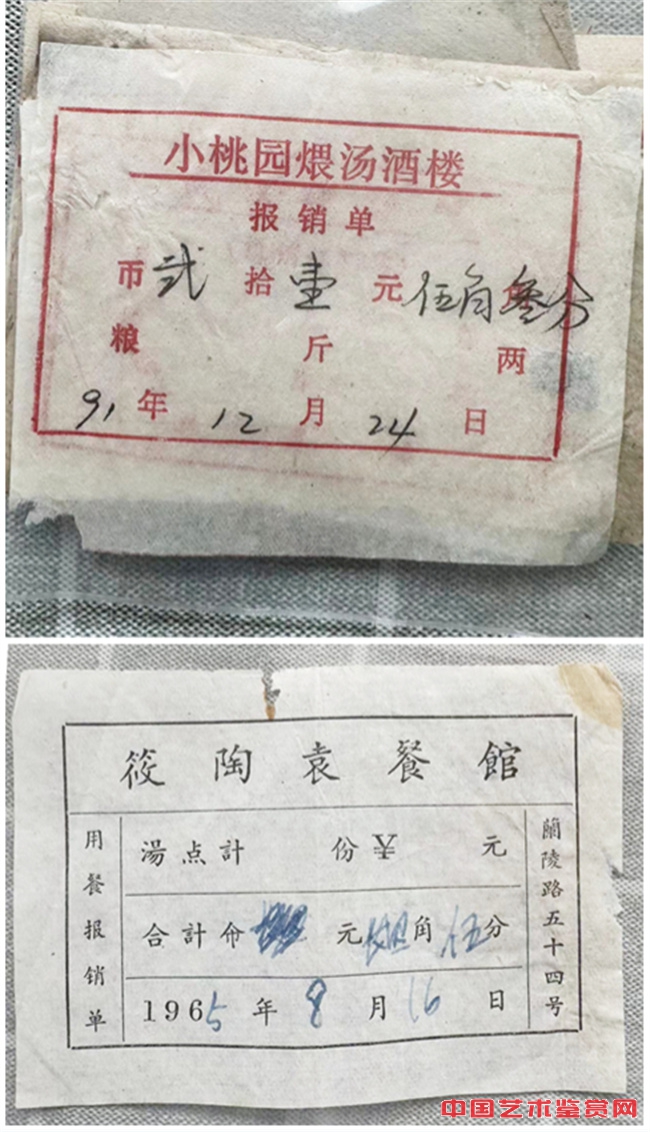 小桃园煨汤酒楼
报销单
币贰拾壹元伍角叁分
粮 斤 两
91年12月24日
筱陶袁餐館
用餐报销单
湯点計 份 元
合計 元 角伍分
1965年8月16日
蘭陵路五十四号
中国艺术鉴赏网